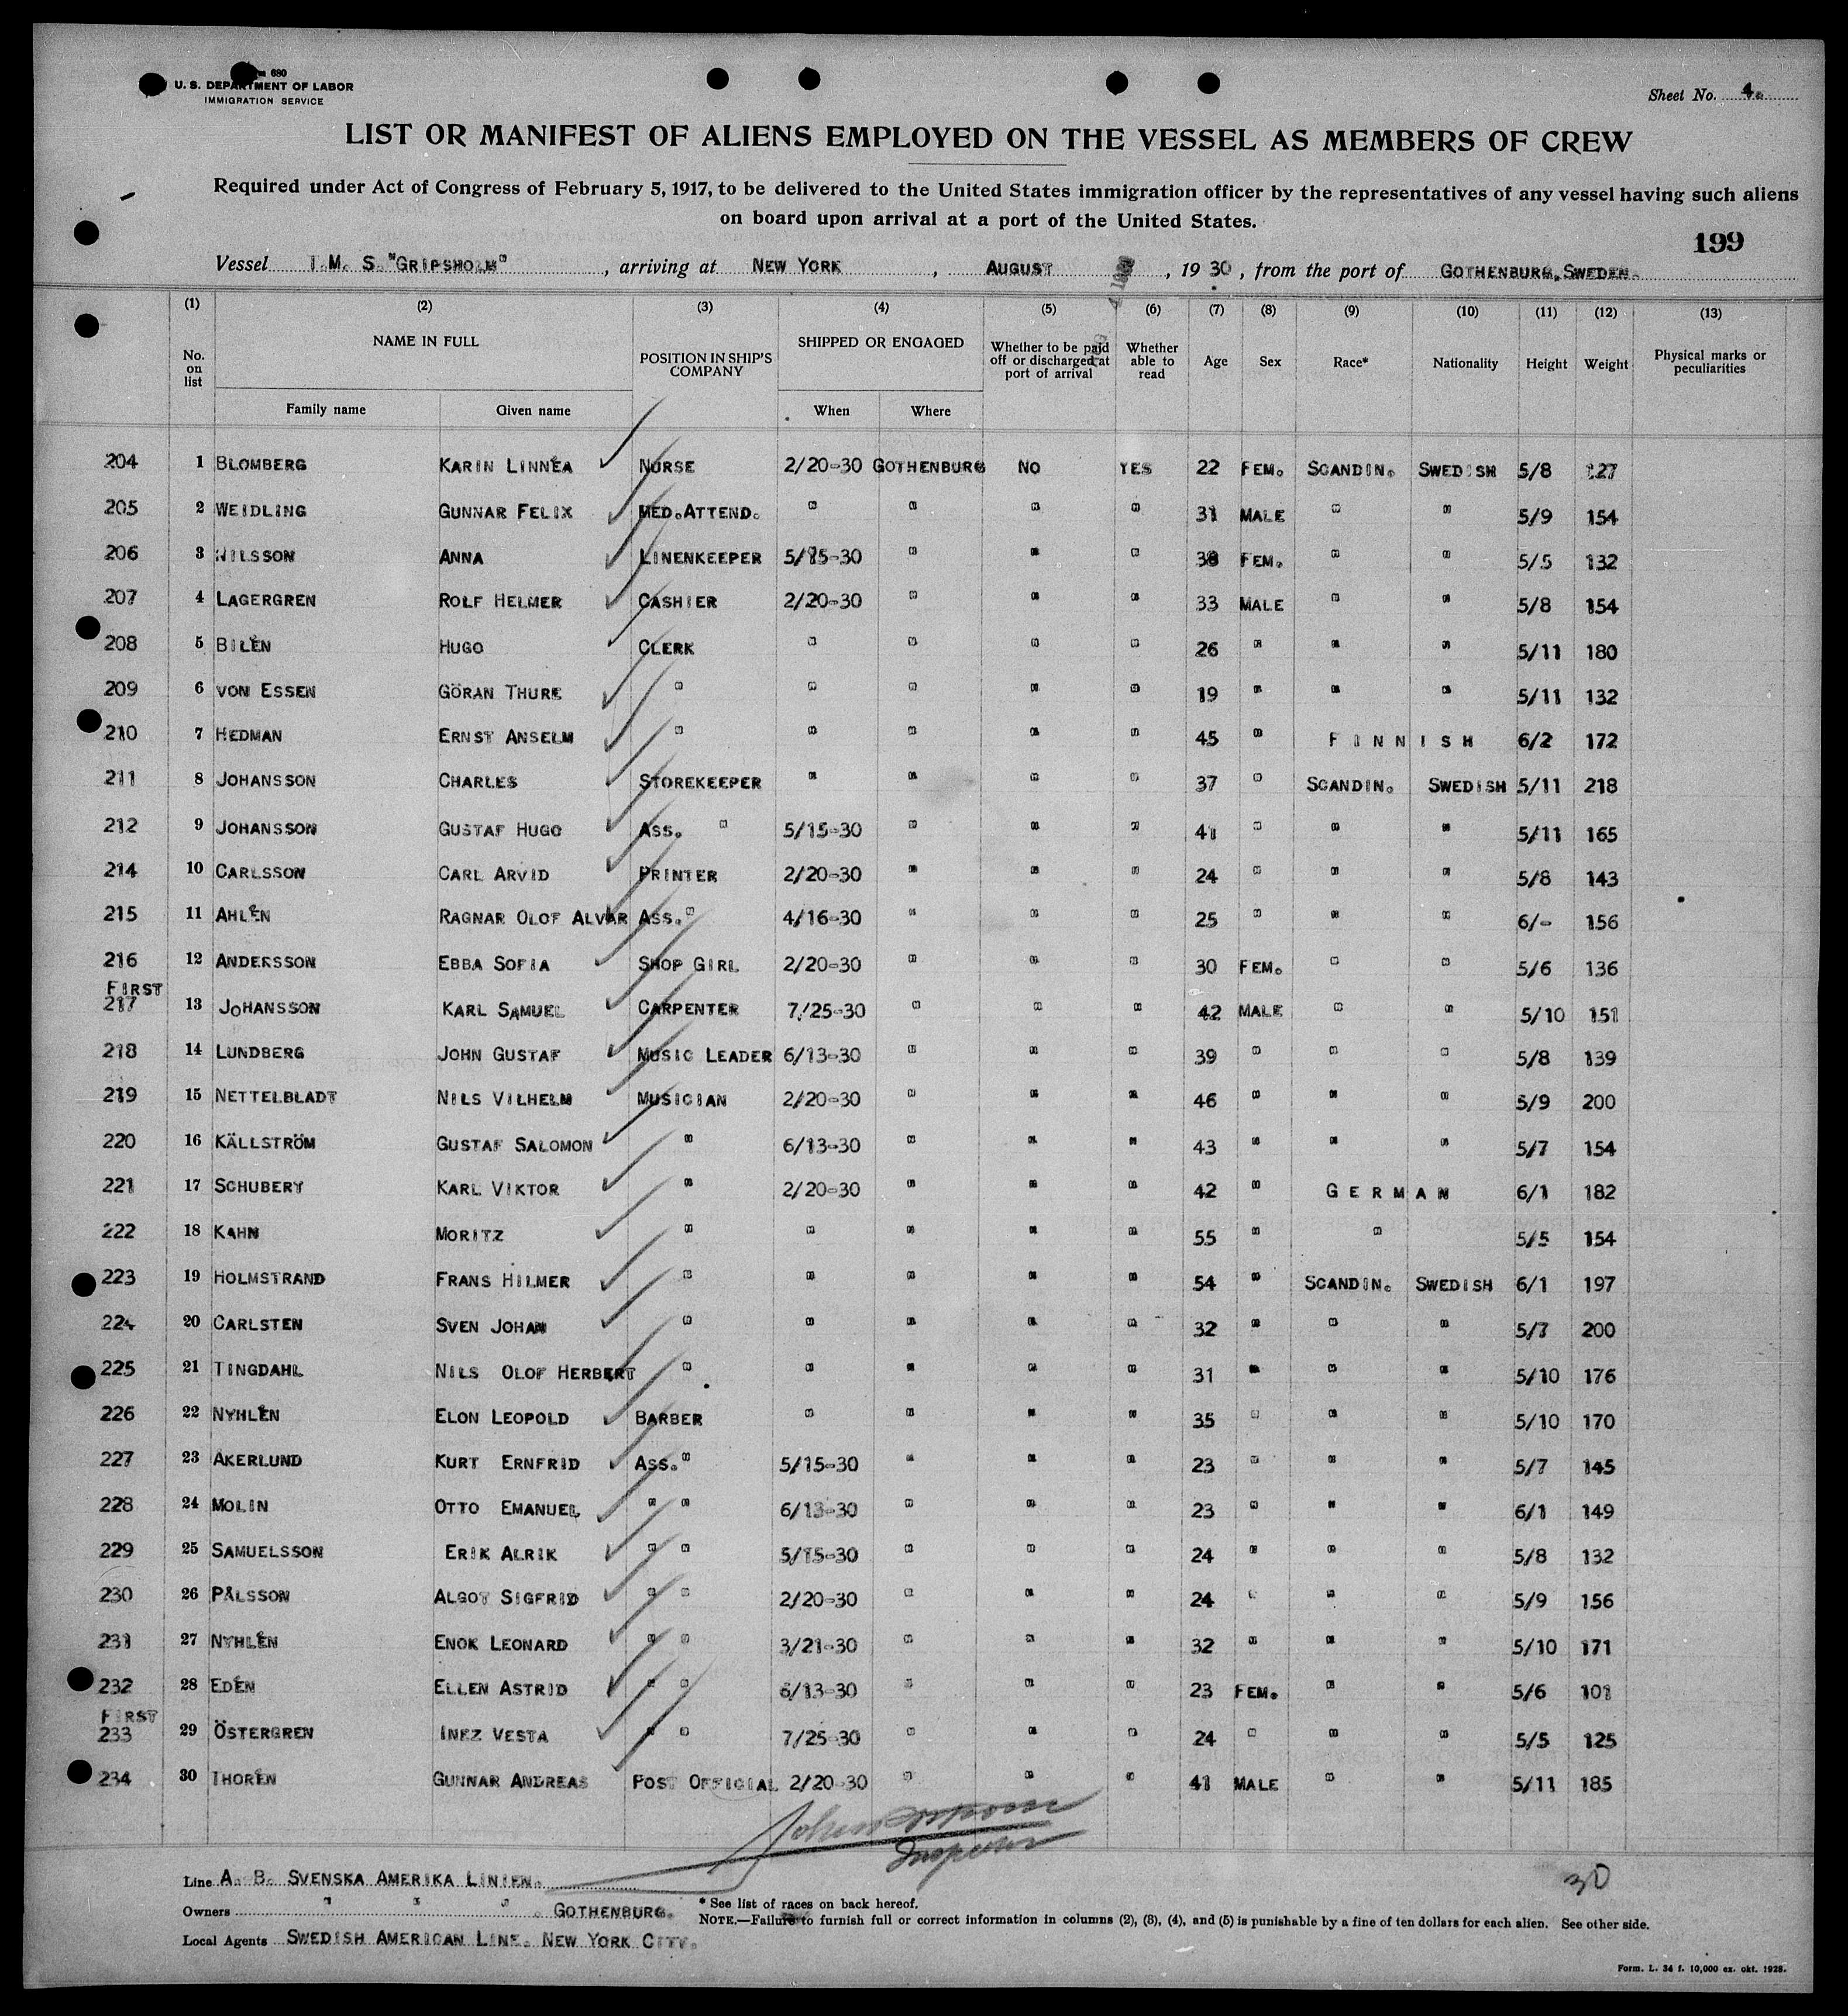 U. S. DEPARTMENT OF LABOR
IMMIGRATION SERVICE
Sheet No. 4.
LIST OR MANIFEST OF ALIENS EMPLOYED ON THE VESSEL AS MEMBERS OF CREW
Required under Act of Congress of February 5, 1917, to be delivered to the United States immigration officer by the representatives of any vessel having such aliens
on board upon arrival at a port of the United States.
199
Vessel T.M. S. "GRIPSHOLM", arriving at NEW YORK, AUGUST, 1930, from the port of GOTHENBURG, SWEDEN.
(1) (2) (3) (4) (5) (6) (7) (8) (9) (10) (11) (12) (13)
No. on list NAME IN FULL POSITION IN SHIP'S COMPANY SHIPPED OR ENGAGED Whether to be paid off or discharged at port of arrival Whether able to read Age Sex Race* Nationality Height Weight Physical marks or peculiarities
Family name Given name When Where
204 1 BLOMBERG KARIN LINNÉA NURSE 2/20-30 GOTHENBURG NO YES 22 FEM. SCANDIN. SWEDISH 5/8 127
205 2 WEIDLING GUNNAR FELIX MED.ATTEND. " " " " 31 MALE " " 5/9 154
206 3 NILSSON ANNA LINENKEEPER 5/15-30 " " " 38 FEM. " " 5/5 132
207 4 LAGERGREN ROLF HELMER CASHIER 2/20-30 " " " 33 MALE " " 5/8 154
208 5 BILÉN HUGO CLERK " " " " 26 " " " 5/11 180
209 6 VON ESSEN GÖRAN THURE " " " " " 19 " " " 5/11 132
210 7 HEDMAN ERNST ANSELM " " " " " 45 " FINNISH 6/2 172
211 8 JOHANSSON CHARLES STOREKEEPER " " " " 37 " SCANDIN. SWEDISH 5/11 218
212 9 JOHANSSON GUSTAF HUGO ASS. " 5/15-30 " " " 41 " " " 5/11 165
214 10 CARLSSON CARL ARVID PRINTER 2/20-30 " " " 24 " " " 5/8 143
215 11 AHLÉN RAGNAR OLOF ALVAR ASS. " 4/16-30 " " " 25 " " " 6/- 156
216 12 ANDERSSON EBBA SOFIA SHOP GIRL 2/20-30 " " " 30 FEM. " " 5/6 136
FIRST
217 13 JOHANSSON KARL SAMUEL CARPENTER 7/25-30 " " " 42 MALE " " 5/10 151
218 14 LUNDBERG JOHN GUSTAF MUSIC LEADER 6/13-30 " " " 39 " " " 5/8 139
219 15 NETTELBLADT NILS VILHELM MUSICIAN 2/20-30 " " " 46 " " " 5/9 200
220 16 KÄLLSTRÖM GUSTAF SALOMON " 6/13-30 " " " 43 " " " 5/7 154
221 17 SCHUBERT KARL VIKTOR " 2/20-30 " " " 42 " GERMAN 6/1 182
222 18 KAHN MORITZ " " " " " 55 " " 5/5 154
223 19 HOLMSTRAND FRANS HILMER " " " " " 54 " SCANDIN. SWEDISH 6/1 197
224 20 CARLSTEN SVEN JOHAN " " " " " 32 " " " 5/7 200
225 21 TINGDAHL NILS OLOF HERBERT " " " " " 31 " " " 5/10 176
226 22 NYHLÉN ELON LEOPOLD BARBER " " " " 35 " " " 5/10 170
227 23 ÅKERLUND KURT ERNFRID ASS. " 5/15-30 " " " 23 " " " 5/7 145
228 24 MOLIN OTTO EMANUEL " " 6/13-30 " " " 23 " " " 6/1 149
229 25 SAMUELSSON ERIK ALRIK " " 5/15-30 " " " 24 " " " 5/8 132
230 26 PÅLSSON ALGOT SIGFRID " " 2/20-30 " " " 24 " " " 5/9 156
231 27 NYHLÉN ENOK LEONARD " " 3/21-30 " " " 32 " " " 5/10 171
232 28 EDÉN ELLEN ASTRID " " 6/13-30 " " " 23 FEM. " " 5/6 101
FIRST
233 29 ÖSTERGREN INEZ VESTA " " 7/25-30 " " " 24 " " " 5/5 125
234 30 THORÉN GUNNAR ANDREAS POST OFFICIAL 2/20-30 " " " 41 MALE " " 5/11 185
Inspector
30
Line A. B. SVENSKA AMERIKA LINIEN.
Owners " " " . GOTHENBURG.
Local Agents SWEDISH AMERICAN LINE. NEW YORK CITY.
* See list of races on back hereof.
NOTE.—Failure to furnish full or correct information in columns (2), (3), (4), and (5) is punishable by a fine of ten dollars for each alien. See other side.
Form. L. 34 f. 10,000 ex. okt. 1928.